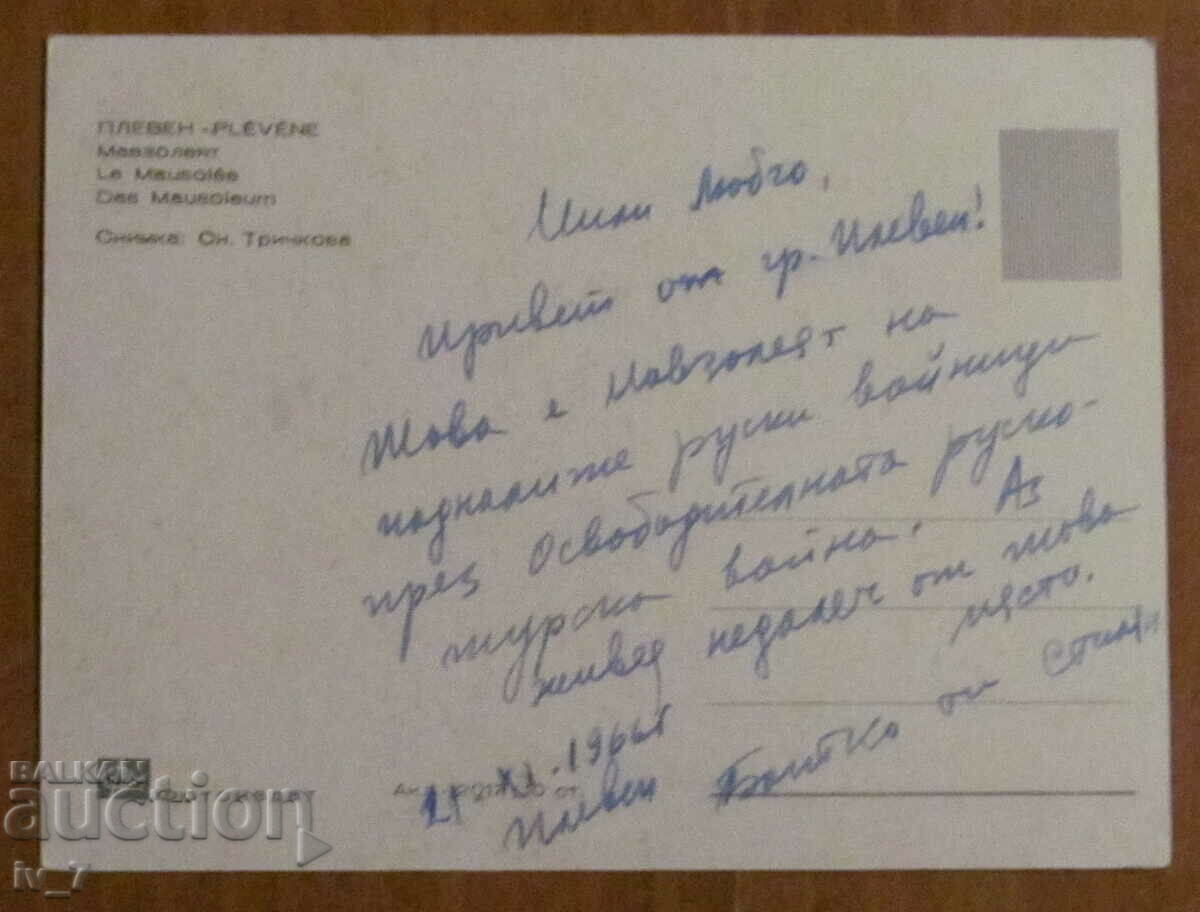 ПЛЕВЕН - PLÉVÉNE
Мавзолеят
Le Mausolée
Das Mausoleum
Снимка: Сн. Тричкова
Мили Любчо,
Привет от гр. Плевен!
Това е Мавзолеят на
падналите руски войници
през Освободителната руско-
турска война. Аз
живея недалеч от това
място.
21. XI. 1966г
Плевен
от
BALKAN
auction
iv_7